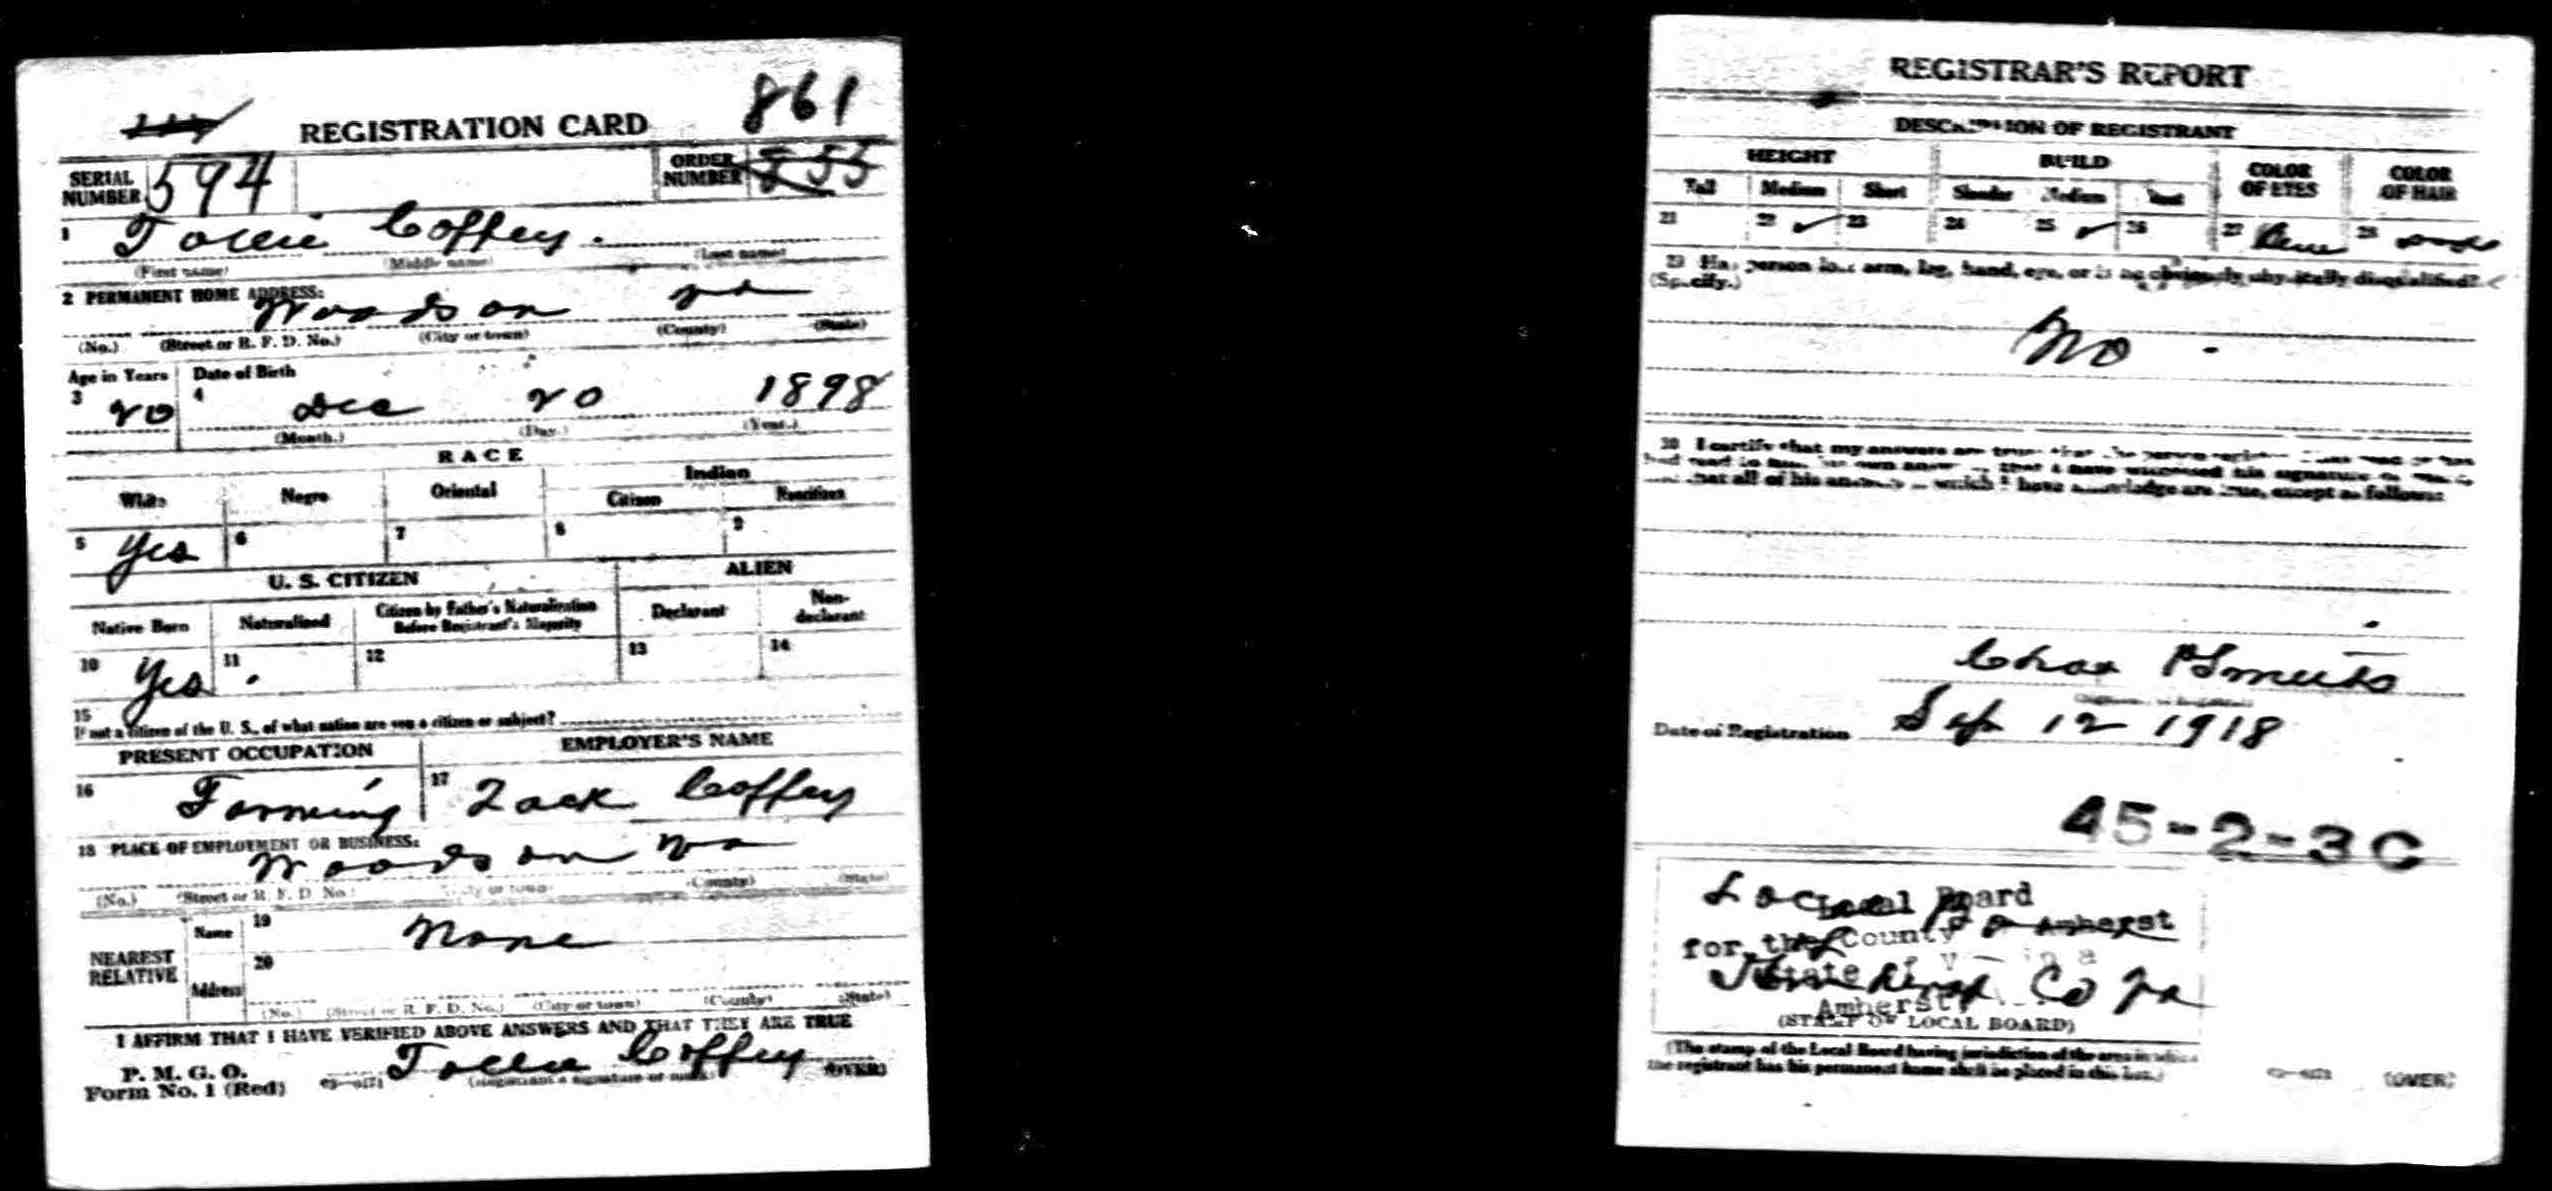 861
REGISTRATION CARD
SERIAL NUMBER 594 ORDER NUMBER 855
1 Tollie Coffey.
(First name) (Middle name) (Last name)
2 PERMANENT HOME ADDRESS:
Woodson Va
(No.) (Street or R. F. D. No.) (City or town) (County) (State)
Age in Years Date of Birth
3 20 4 Dec 20 1898
(Month.) (Day.) (Year.)
RACE
White Negro Oriental Indian
Citizen Noncitizen
5 Yes 6 7 8 9
U. S. CITIZEN ALIEN
Native Born Naturalized Citizen by Father's Naturalization Before Registrant's Majority Declarant Non-declarant
10 Yes 11 12 13 14
15
If not a citizen of the U. S., of what nation are you a citizen or subject?
PRESENT OCCUPATION EMPLOYER'S NAME
16 Farming 17 Zack Coffey
18 PLACE OF EMPLOYMENT OR BUSINESS:
Woodson Va
(No.) (Street or R. F. D. No.) (City or town) (County) (State)
NEAREST RELATIVE Name 19 None
Address 20
(No.) (Street or R. F. D. No.) (City or town) (County) (State)
I AFFIRM THAT I HAVE VERIFIED ABOVE ANSWERS AND THAT THEY ARE TRUE
P. M. G. O.
Form No. 1 (Red) Tollie Coffey (OVER)
(Registrant's signature or mark)
REGISTRAR'S REPORT
DESCRIPTION OF REGISTRANT
HEIGHT BUILD COLOR OF EYES COLOR OF HAIR
Tall Medium Short Slender Medium Stout
21 22 ✓ 23 24 25 ✓ 26 27 28
29 Has person lost arm, leg, hand, eye, or is he obviously physically disqualified?
(Specify.)
No.
30 I certify that my answers are true; that the person registered has read or has
had read to him his own answers; that I have witnessed his signature or mark
and that all of his answers of which I have knowledge are true, except as follows:
Chas
Date of Registration Sep 12 1918
45-2-3 C
Local Board
for the County Amherst
State
Amherst Co Va
Amherst
(STAMP OF LOCAL BOARD)
(The stamp of the Local Board having jurisdiction of the area in which
the registrant has his permanent home shall be placed in this box.)
(OVER)